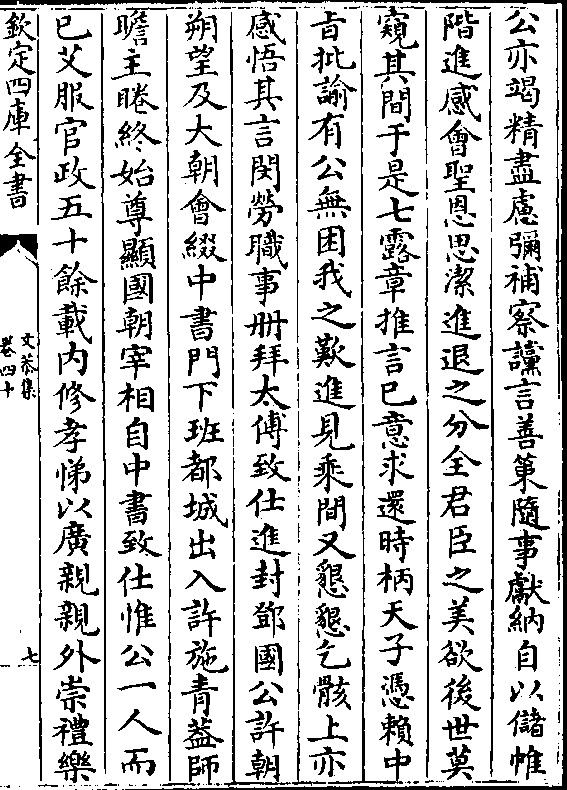 公亦竭精盡慮彌補察讜言善策隨事獻納自以儲帷
階進感會聖恩思潔進退之分全君臣之美欲後世莫
窺其間于是七露章推言已意求還時柄天子憑賴中
㫖批諭有公無困我之歎進見乘間又懇懇乞骸上亦
感悟其言閔勞職事册拜太傅致仕進封鄧國公許朝
朔望及大朝會綴中書門下班都城出入許施青葢師
瞻主睠終始尊顯國朝宰相自中書致仕惟公一人而
已艾服官政五十餘載内修孝悌以廣親親外崇禮樂
欽定四庫全書
文恭集
卷四十
七